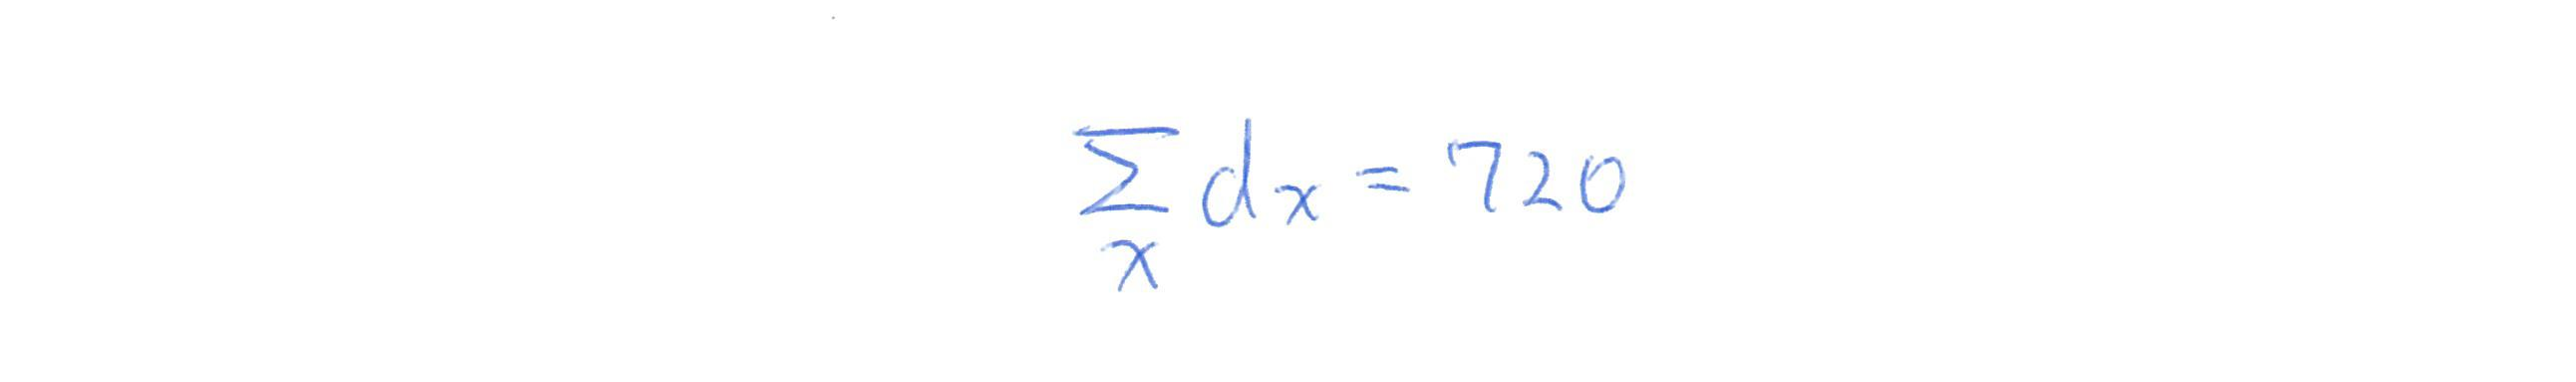 $\sum_{x} d_x = 720$